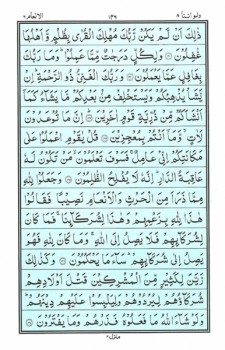 ولو اننا ٨ الانعام ٦
ذٰلِكَ اَنْ لَّمْ يَكُنْ رَّبُّكَ مُهْلِكَ الْقُرٰى بِظُلْمٍ وَّاَهْلُهَا
غٰفِلُوْنَ ۝ وَلِكُلٍّ دَرَجٰتٌ مِّمَّا عَمِلُوْا ؕ وَمَا رَبُّكَ
بِغَافِلٍ عَمَّا يَعْمَلُوْنَ ۝ وَرَبُّكَ الْغَنِيُّ ذُو الرَّحْمَةِ ؕ اِنْ
يَّشَاْ يُذْهِبْكُمْ وَيَسْتَخْلِفْ مِنْۢ بَعْدِكُمْ مَّا يَشَآءُ كَمَآ
اَنْشَاَكُمْ مِّنْ ذُرِّيَّةِ قَوْمٍ اٰخَرِيْنَ ۝ اِنَّ مَا تُوْعَدُوْنَ
لَاٰتٍ ۙ وَّمَآ اَنْتُمْ بِمُعْجِزِيْنَ ۝ قُلْ يٰقَوْمِ اعْمَلُوْا عَلٰى
مَكَانَتِكُمْ اِنِّيْ عَامِلٌ ۚ فَسَوْفَ تَعْلَمُوْنَ ۙ مَنْ تَكُوْنُ لَهٗ
عَاقِبَةُ الدَّارِ ؕ اِنَّهٗ لَا يُفْلِحُ الظّٰلِمُوْنَ ۝ وَجَعَلُوْا لِلّٰهِ
مِمَّا ذَرَاَ مِنَ الْحَرْثِ وَالْاَنْعَامِ نَصِيْبًا فَقَالُوْا
هٰذَا لِلّٰهِ بِزَعْمِهِمْ وَهٰذَا لِشُرَكَآئِنَا ۚ فَمَا كَانَ
لِشُرَكَآئِهِمْ فَلَا يَصِلُ اِلَى اللّٰهِ ۚ وَمَا كَانَ لِلّٰهِ فَهُوَ
يَصِلُ اِلٰى شُرَكَآئِهِمْ ؕ سَآءَ مَا يَحْكُمُوْنَ ۝ وَكَذٰلِكَ
زَيَّنَ لِكَثِيْرٍ مِّنَ الْمُشْرِكِيْنَ قَتْلَ اَوْلَادِهِمْ
شُرَكَآؤُهُمْ لِيُرْدُوْهُمْ وَلِيَلْبِسُوْا عَلَيْهِمْ دِيْنَهُمْ ؕ
وَلَوْ شَآءَ اللّٰهُ مَا فَعَلُوْهُ فَذَرْهُمْ وَمَا يَفْتَرُوْنَ ۝
منزل ٢